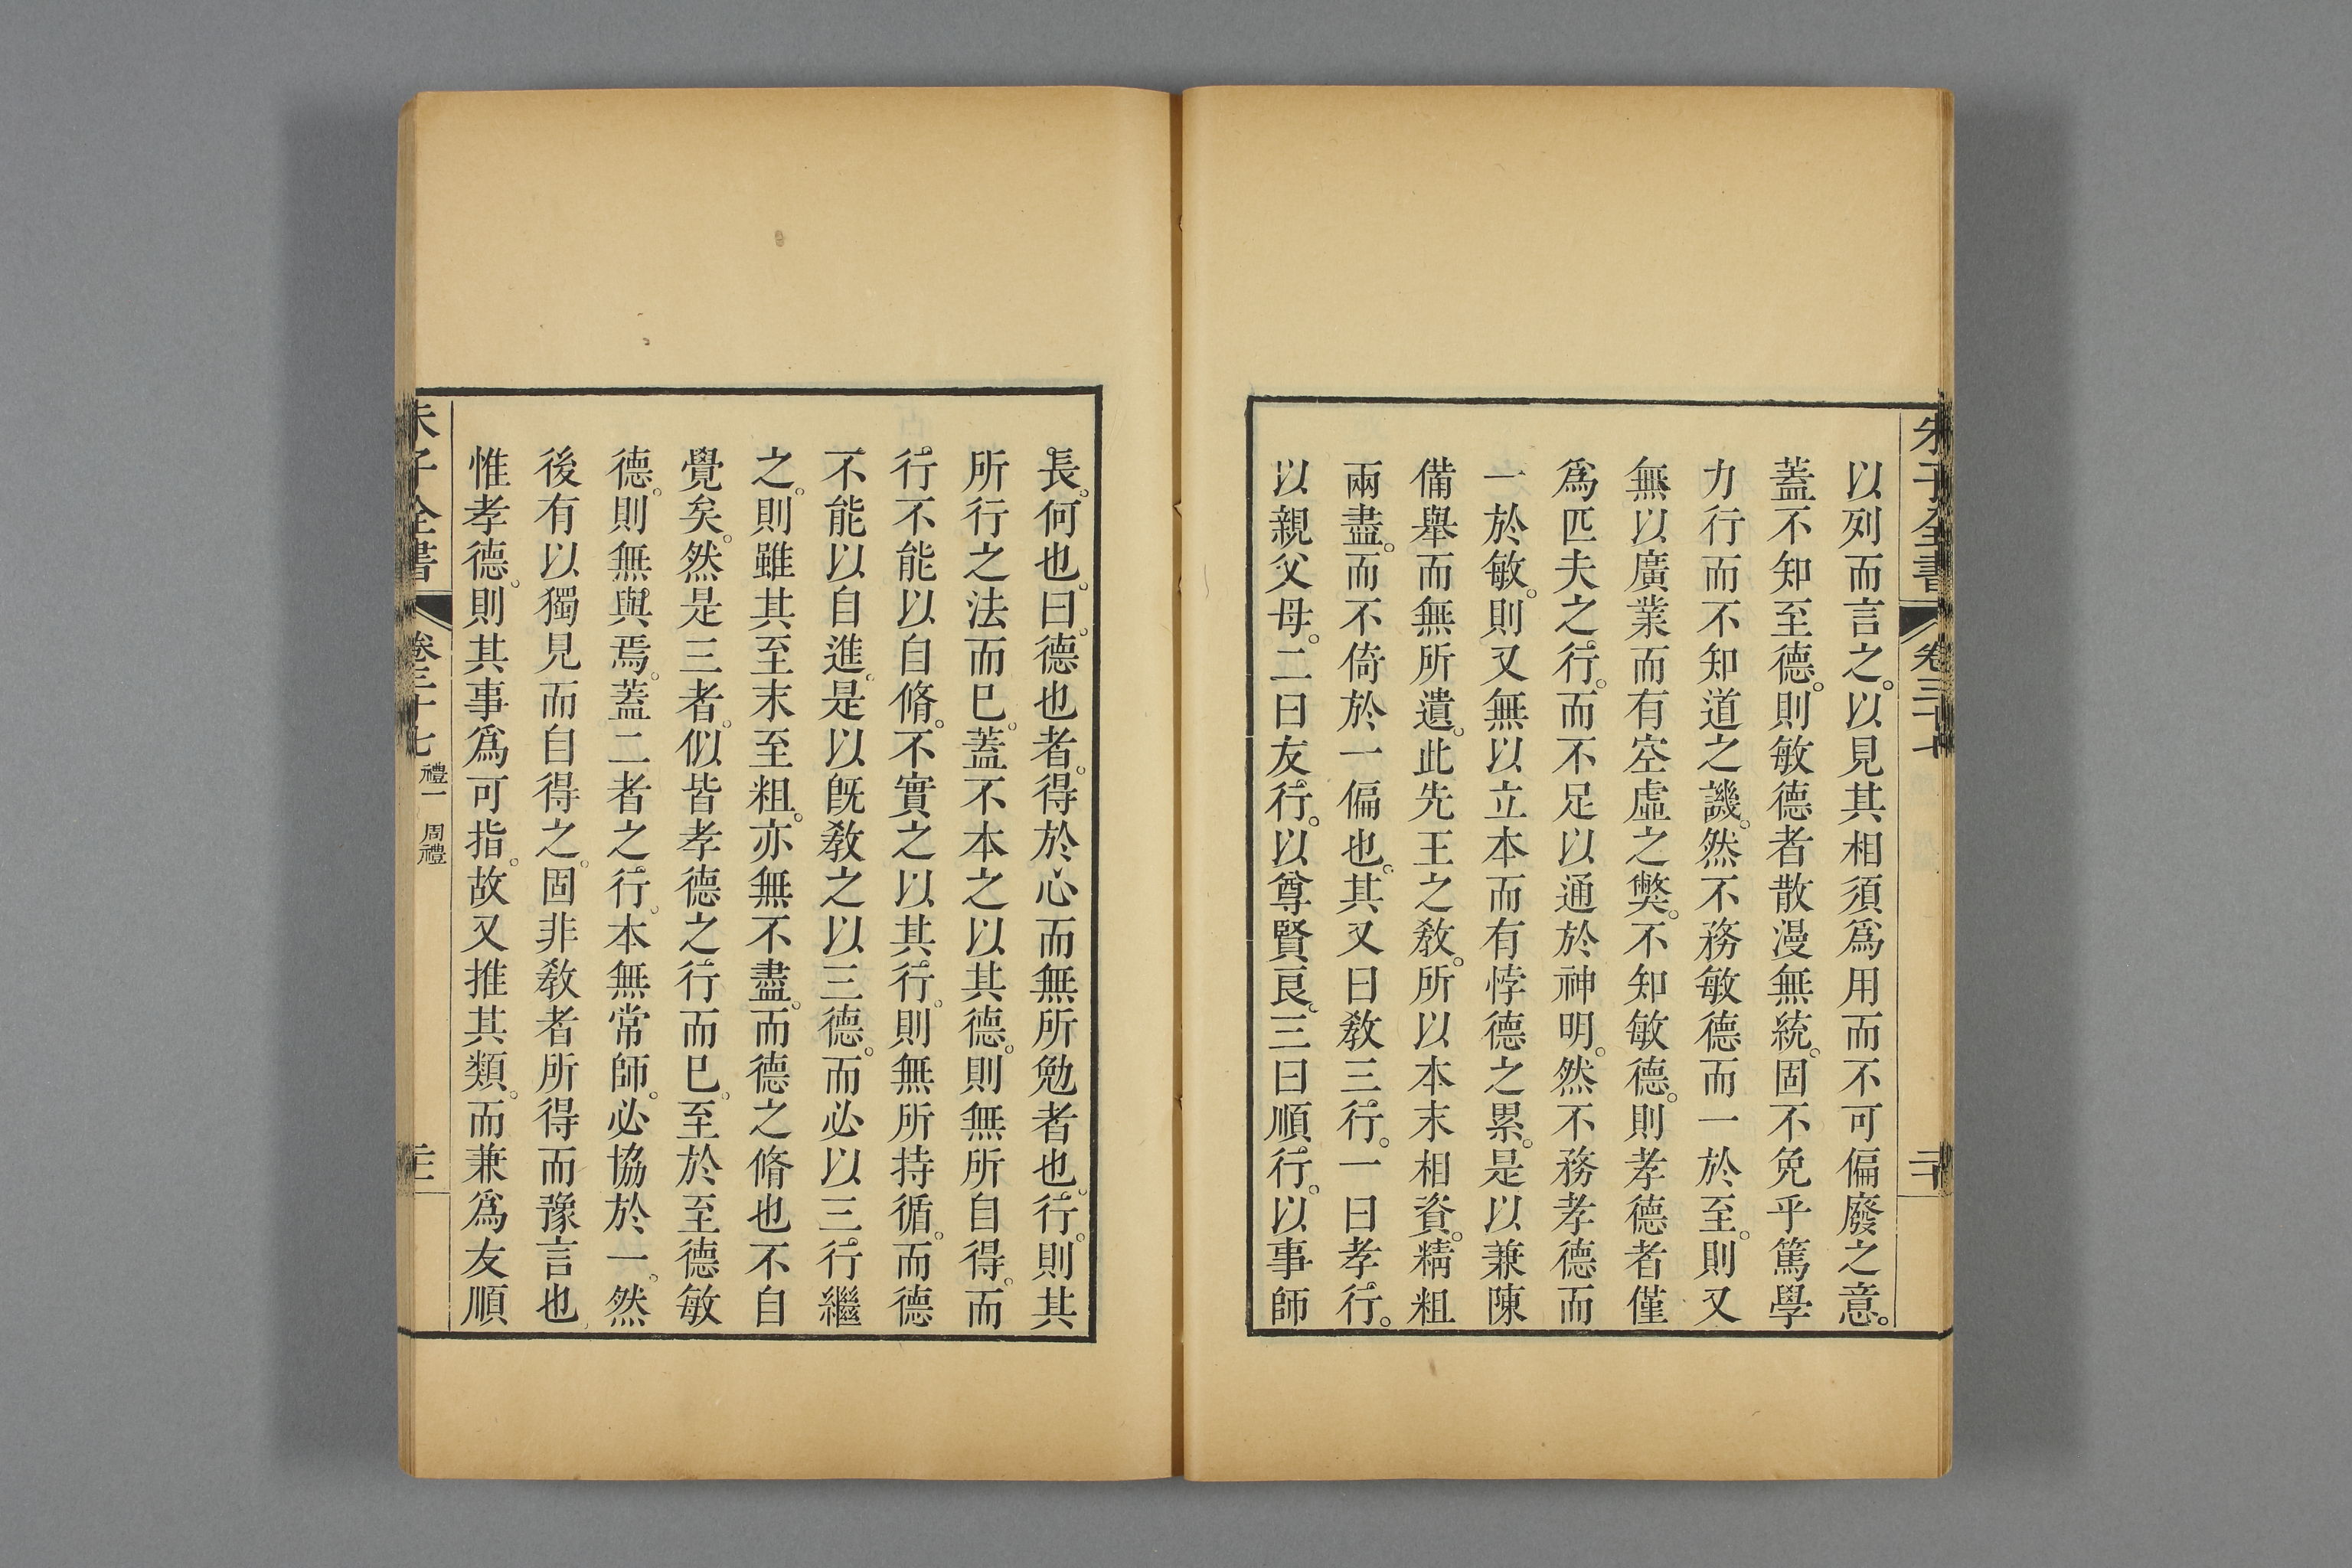 朱子全書 卷三十七 二十
以列而言之。以見其相須爲用而不可偏廢之意。
蓋不知至德。則敏德者散漫無統。固不免乎篤學
力行而不知道之譏。然不務敏德而一於至。則又
無以廣業而有空虛之獘。不知敏德。則孝德者僅
爲匹夫之行。而不足以通於神明。然不務孝德而
一於敏。則又無以立本而有悖德之累。是以兼陳
備舉而無所遺。此先王之敎。所以本末相資。精粗
兩盡。而不倚於一偏也。其又曰敎三行。一曰孝行。
以親父母。二曰友行。以尊賢良。三曰順行。以事師
長。何也。曰。德也者。得於心而無所勉者也。行。則其
所行之法而已。蓋不本之以其德。則無所自得。而
行不能以自脩。不實之以其行。則無所持循。而德
不能以自進。是以旣敎之以三德。而必以三行繼
之。則雖其至末至粗。亦無不盡。而德之脩也不自
覺矣。然是三者。似皆孝德之行而已。至於至德敏
德。則無與焉。蓋二者之行。本無常師。必協於一。然
後有以獨見而自得之。固非敎者所得而豫言也。
惟孝德。則其事爲可指。故又推其類。而兼爲友順
朱子全書 卷三十七 禮一 周禮